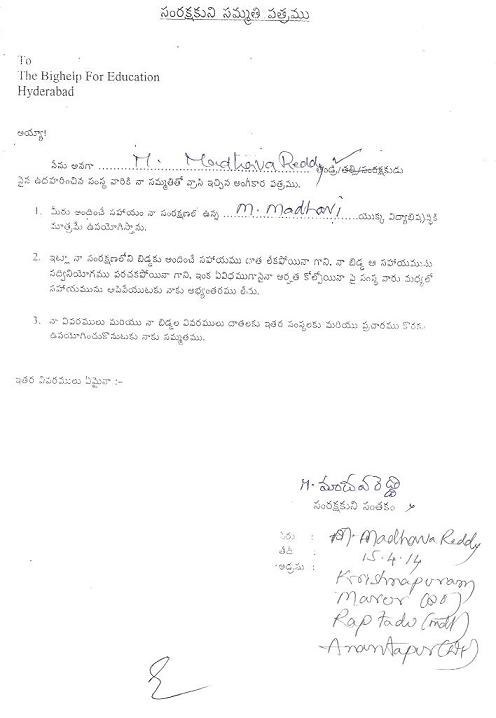 సంరక్షకుని సమ్మతి పత్రము
To
The Bighelp For Education
Hyderabad
అయ్యా!
నేను అనగా M. Madhava Reddy తండ్రి/తల్లి/సంరక్షకుడు
పైన ఉదహరించిన సంస్థ వారికి నా సమ్మతితో వ్రాసి ఇచ్చిన అంగీకార పత్రము.
1. మీరు అందించే సహాయం నా సంరక్షణలో ఉన్న M. Madhavi యొక్క విద్యాభివృద్ధికి
మాత్రమే ఉపయోగిస్తాను.
2. ఇట్లా నా సంరక్షణలోని బిడ్డకు అందించే సహాయము దాత లేకపోయినా గాని, నా బిడ్డ ఆ సహాయమును
సద్వినియోగము పరచకపోయినా గాని, ఇంక ఏవిధముగానైనా అర్హత కోల్పోయినా పై సంస్థ వారు మధ్యలో
సహాయమును ఆపివేయుటకు నాకు అభ్యంతరము లేదు.
3. నా వివరములు మరియు నా బిడ్డల వివరములు దాతలకు ఇతర సంస్థలకు మరియు ప్రచారము కొరకు
ఉపయోగించుకొనుటకు నాకు సమ్మతము.
ఇతర వివరములు ఏమైనా :-
M. మాధవరెడ్డి
సంరక్షకుని సంతకం
పేరు : M. Madhava Reddy
తేది : 15.4.14
అడ్రసు : Krishnapuram
Maror (PO)
Raptadu (mdl)
Anantapur (Dt)